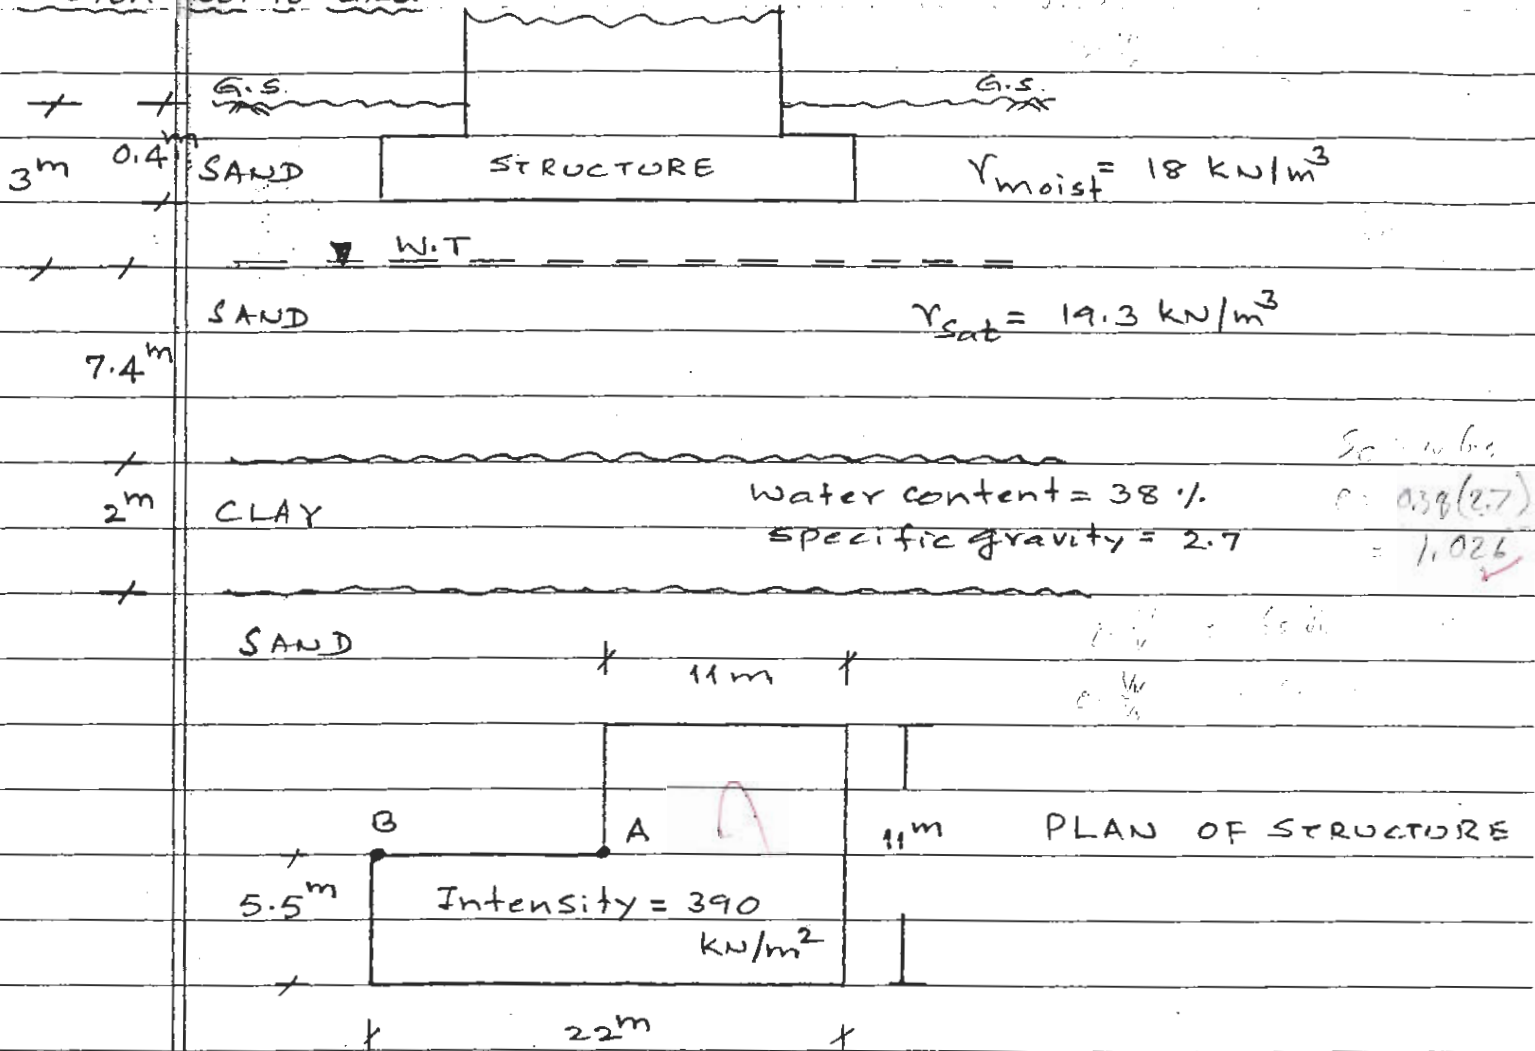 G.S.
G.S.
3m
0.4m
SAND
STRUCTURE
γmoist = 18 kN/m³
W.T
SAND
γsat = 19.3 kN/m³
7.4m
2m
CLAY
Water content = 38 %
0.38(2.7)
specific gravity = 2.7
= 1.026
SAND
11m
B
A
11m
PLAN OF STRUCTURE
5.5m
Intensity = 390
kN/m²
22m